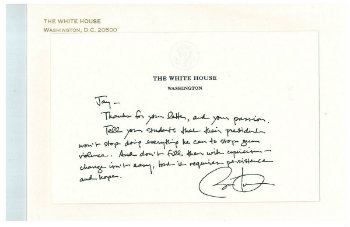 THE WHITE HOUSE
WASHINGTON, D.C. 20500
THE WHITE HOUSE
WASHINGTON
Jay —
Thanks for your letter, and your passion.
Tell your students that their president
won't stop doing everything he can to stop gun
violence. And don't fill them with cynicism —
change isn't easy, but it requires persistence
and hope.